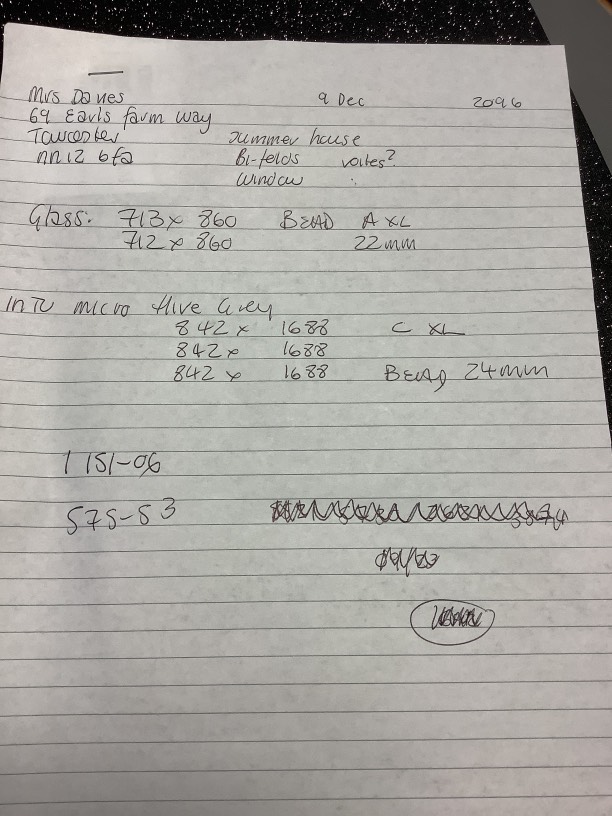 Mrs Davies 9 Dec 2096
69 Earls farm way
Towcester summer house
nn12 6fa Bi-folds
window
Glass: 713 x 860 BEAD A XL
712 x 860 22mm
INTU micro Hive Grey
842 x 1688 C XL
842 x 1688
842 x 1688 BEAD 24mm
1151-06
575-53